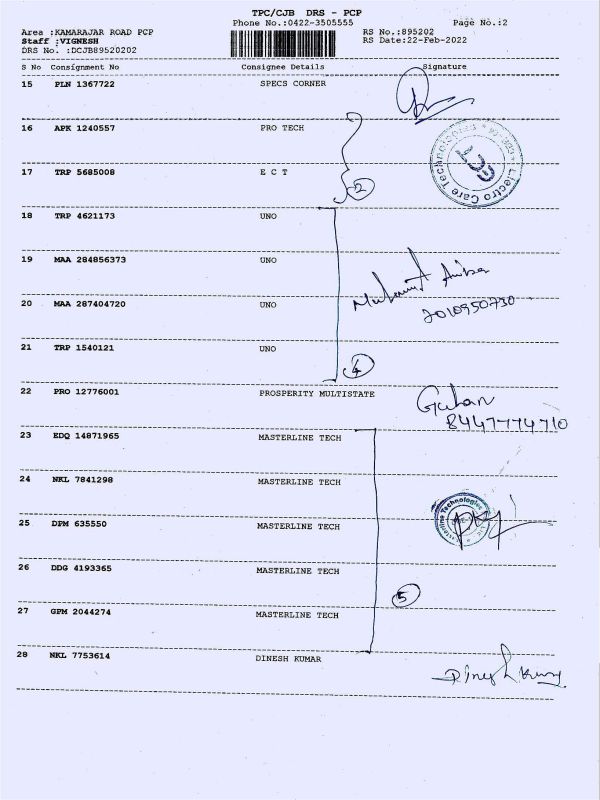 TPC/CJB DRS - PCP
Phone No.:0422-3505555 Page No.:2
Area :KAMARAJAR ROAD PCP RS No.:895202
Staff :VIGNESH RS Date:22-Feb-2022
DRS No. :DCJB89520202
S No Consignment No Consignee Details Signature
15 PLN 1367722 SPECS CORNER
16 APK 1240557 PRO TECH
Electro Care Technologies
17 TRP 5685008 E C T
2
18 TRP 4621173 UNO
19 MAA 284856373 UNO
20 MAA 287404720 UNO
7010950730
21 TRP 1540121 UNO
4
22 PRO 12776001 PROSPERITY MULTISTATE
8447774710
23 EDQ 14871965 MASTERLINE TECH
24 NKL 7841298 MASTERLINE TECH
Masterline Technologies
25 DPM 635550 MASTERLINE TECH
26 DDG 4193365 MASTERLINE TECH
5
27 GPM 2044274 MASTERLINE TECH
28 NKL 7753614 DINESH KUMAR